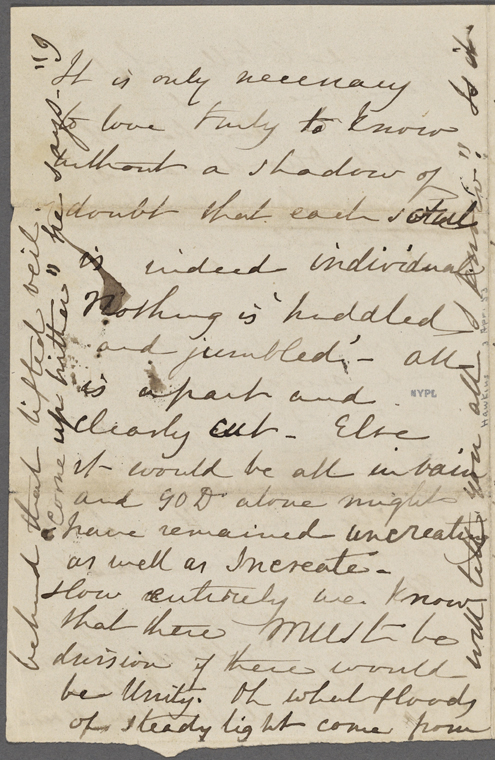 It is only necessary
to love truly to know
without a shadow of
doubt that each soul
is indeed individual
Nothing is huddled
and jumbled, - all
is apart and
clearly cut - Else
it would be all in vain
and GOD alone might
have remained uncreate
as well as Increate -
How entirely we know
that there MUST be
division if there would
be Unity. Oh what floods
of steady light come from
behind that lifted veil.
"come up hither" he says - "I
will tell you all I know." Is it
NYPL